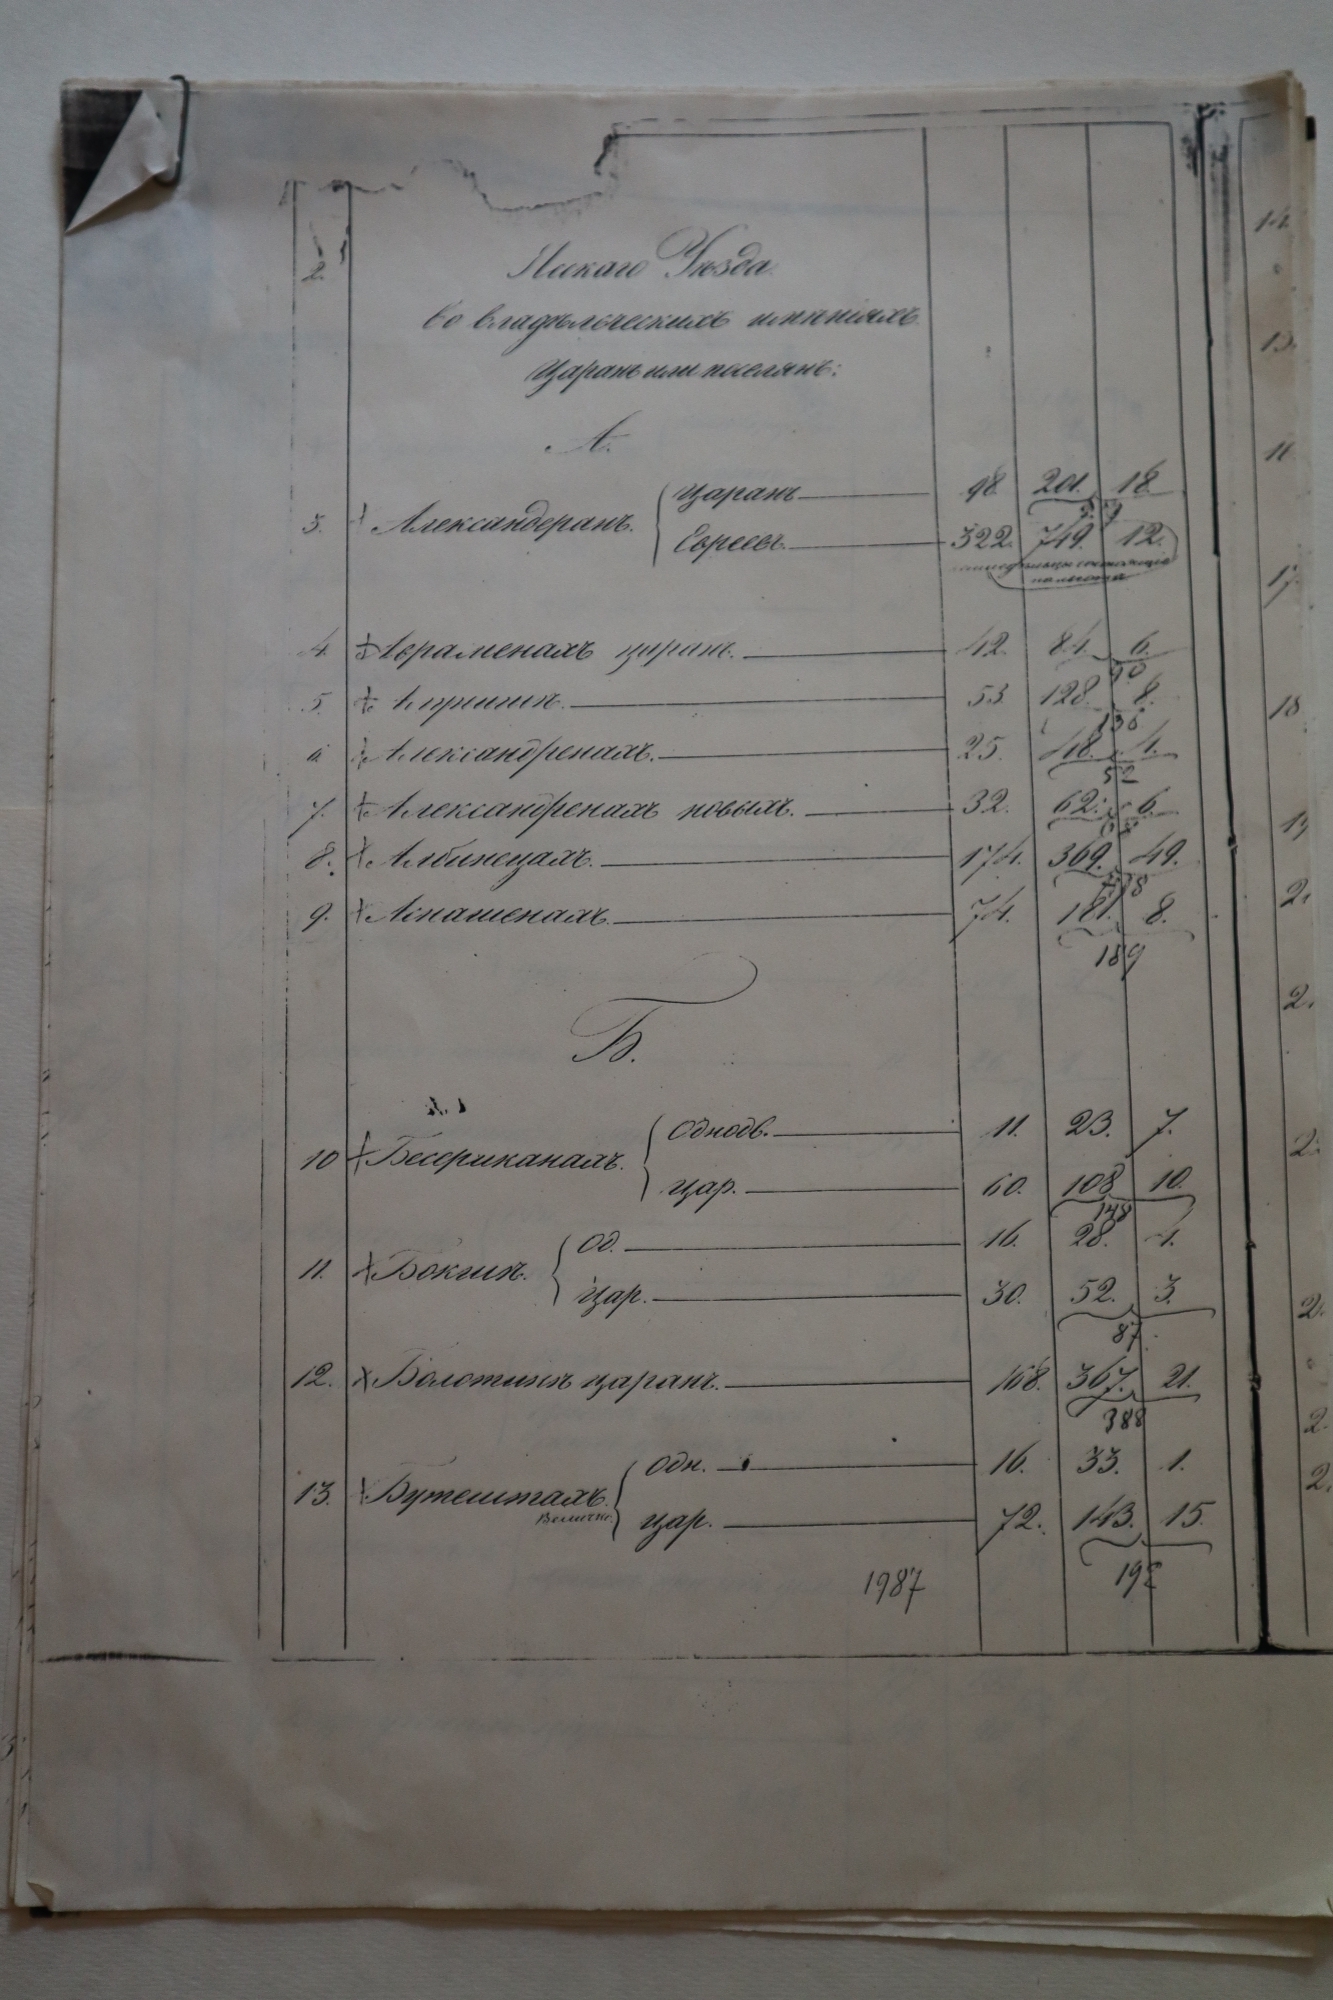 2.
Ясскаго Уѣзда
Во владѣльческихъ имѣніяхъ
Царанъ или поселянъ:
А.
3. Александеранъ. Царанъ 98. 201. 18.
Евреевъ. 322. 749. 12.
4. Авраменахъ царанъ. 42. 84. 6.
90
5. 53. 128. 8.
136
6. Александренахъ. 25. 48. 4.
52
7. Александренахъ новыхъ. 32. 62. 6.
68
8. Албинецахъ. 174. 369. 49.
9. 74. 181. 8.
189
Б.
10 Бесериканахъ. Однодв. 11. 23. 7.
цар. 60. 108 10.
148
11. Бокшѣ. Од. 16. 28. 4.
Цар. 30. 52. 3.
87
12. Болотинѣ царанъ. 168. 367. 21.
388
13. Бутештахъ. Одн. 16. 33. 1.
цар. 72. 143. 15.
192
1987
14.
15.
16
17.
18
19
2.
2.
2.
2.
2.
2.